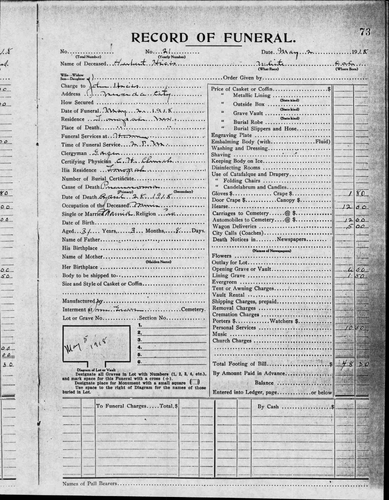 73
RECORD OF FUNERAL.
No. No. 21 Date, May 2 1918
(Total Number) (Yearly Number)
Name of Deceased Hubert Hicks White
(What Race) (Where Born)
Charge to John Hicks Order Given by
Address Nevada City
How Secured
Date of Funeral May 2, 1918
Residence Tonopah, Nev.
Place of Death
Funeral Services at Home
Time of Funeral Service 2 P.M.
Clergyman
Certifying Physician
His Residence Tonopah
Number of Burial Certificate
Cause of Death Pneumonia
Date of Death April 28, 1918
Occupation of the Deceased Miner
Single or Married Religion
Aged 31 Years, 3 Months, 8 Days.
Name of Father
His Birthplace
Name of Mother
(Maiden Name)
Her Birthplace
Body to be shipped to
Size and Style of Casket or Coffin
Manufactured by
Interment at Cemetery.
Lot or Grave No. Section No.
1
2
3
4
5
6
May 5 1918
Diagram of Lot or Vault
Designate all Graves in Lot with Numbers (1, 2, 3, 4, etc.), and mark space for this Funeral with a cross (+)
Designate place for Monument with a small square
Use space to right of Diagram for the names of those buried in Lot.
Price of Casket or Coffin $
" Metallic Lining
(State kind)
" Outside Box
(State kind)
" Grave Vault
(State kind)
" Burial Robe
(State kind)
" Burial Slippers and Hose
Engraving Plate
Embalming Body (with Fluid)
Washing and Dressing
Shaving
Keeping Body on Ice
Disinfecting Rooms
Use of Catafalque and Drapery
" Folding Chairs
" Candelabrum and Candles
Gloves $ Door Crape $
Door Crape $ Canopy $
Hearse 12 00
Carriages to Cemetery @ $
Automobiles to Cemetery @ $ 12 00
Wagon Delivery 5 00
City Calls (Coaches)
Death Notices in Newspapers
(Names of Newspapers)
Flowers
Outlay for Lot
Opening Grave or Vault
Lining Grave
Evergreen
Tent or Awning Charges
Vault Rental
Shipping Charges, prepaid
Removal Charges
Cremation Charges
Porters $ Watchers $
Personal Services
Music
Church Charges
Total Footing of Bill $
By Amount Paid in Advance
Balance
Entered into Ledger, page or below.
To Funeral Charges, Total $ By Cash $
Names of Pall Bearers